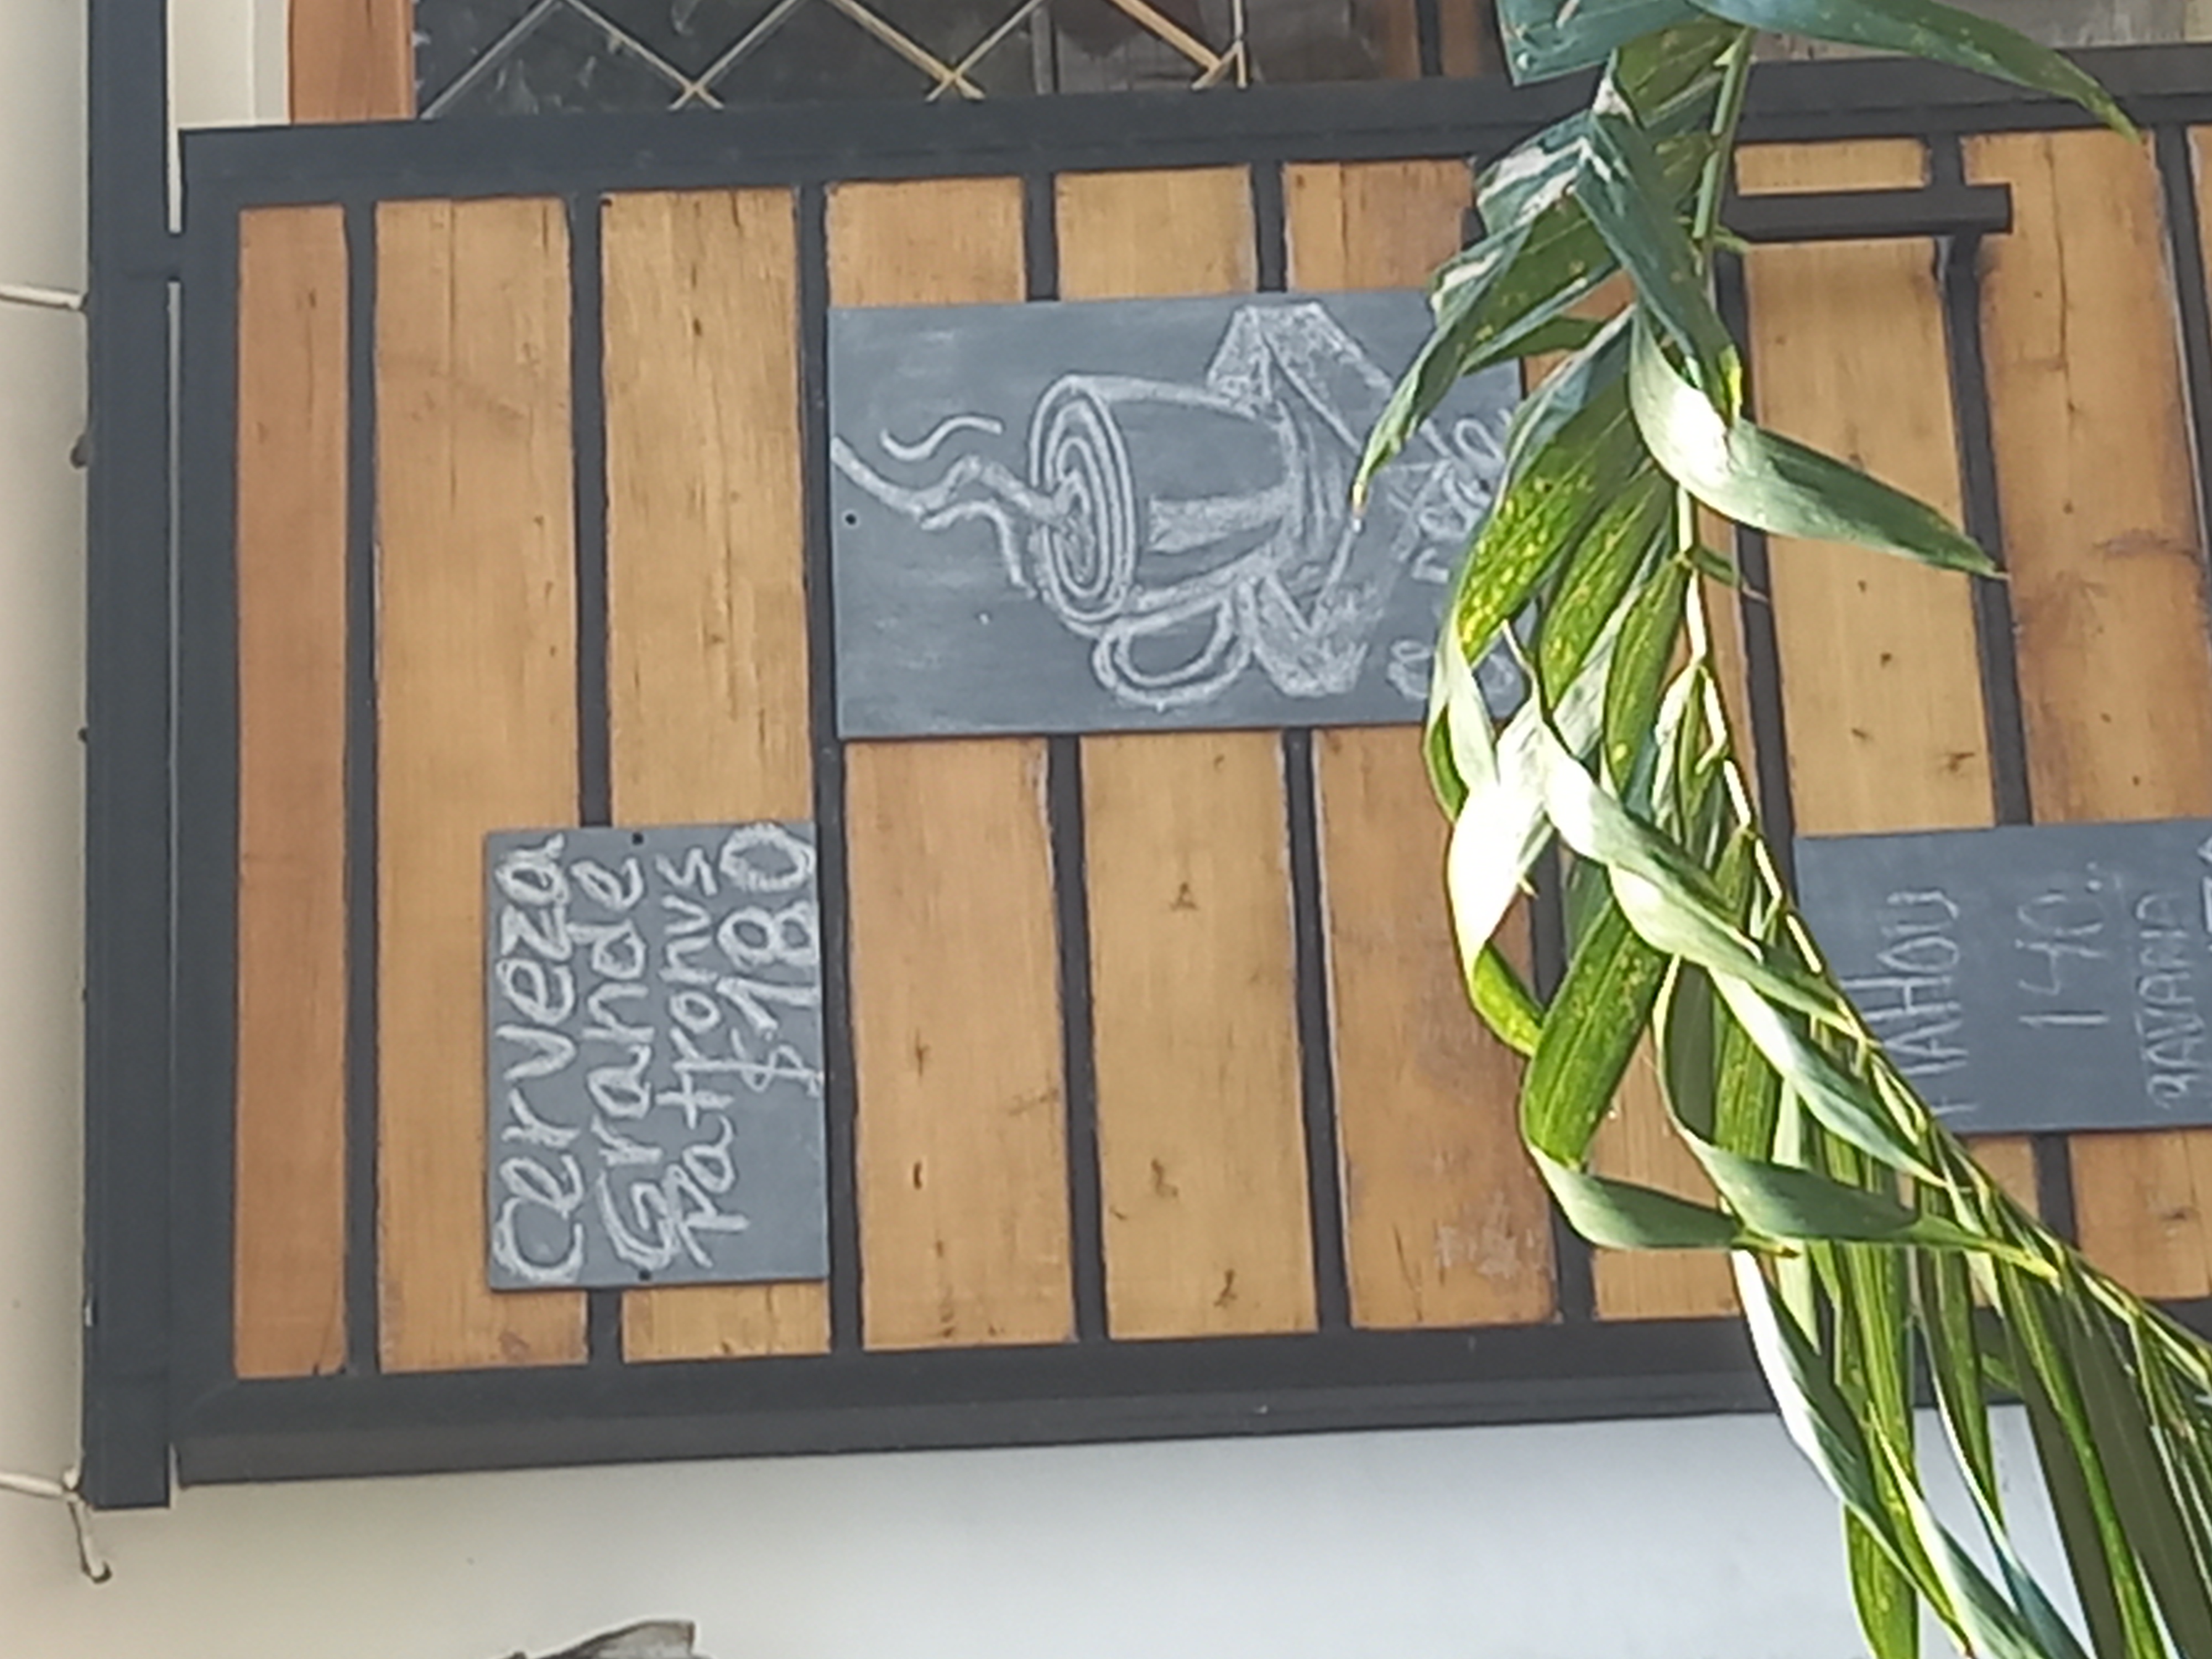 Cerveza
Grande
Patronus
$180
MAHOU
140
BAVARIA